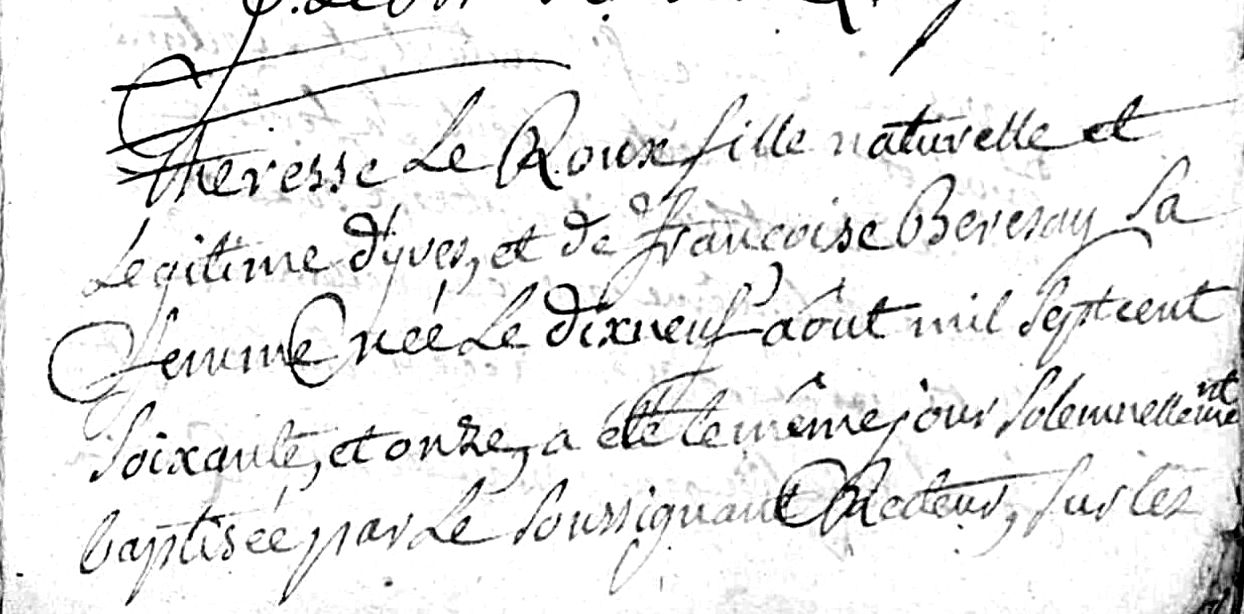 Theresse Le Roux fille naturelle et
Legitime d'yves, et de françoise Beveray sa
femme née Le dixneuf août mil sept cent
soixante, et onze, a eté le même jour solemnellement
baptisée par Le soussignant Recteur, sur les